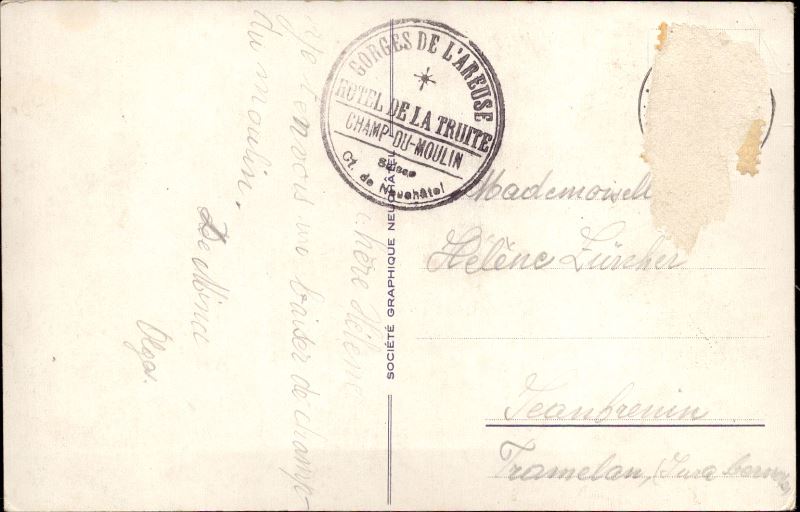 GORGES DE L'AREUSE
HOTEL DE LA TRUITE
CHAMP-DU-MOULIN
Suisse
Ct. de Neuchâtel
SOCIÉTÉ GRAPHIQUE NEUCHÂTEL
Chère Hélène
Je t'envois un baiser de champ
du moulin.
De Mina
Olga.
Mademoiselle
Hélène Zürcher
Jeanbrenin
Tramelan, (Jura bernois)